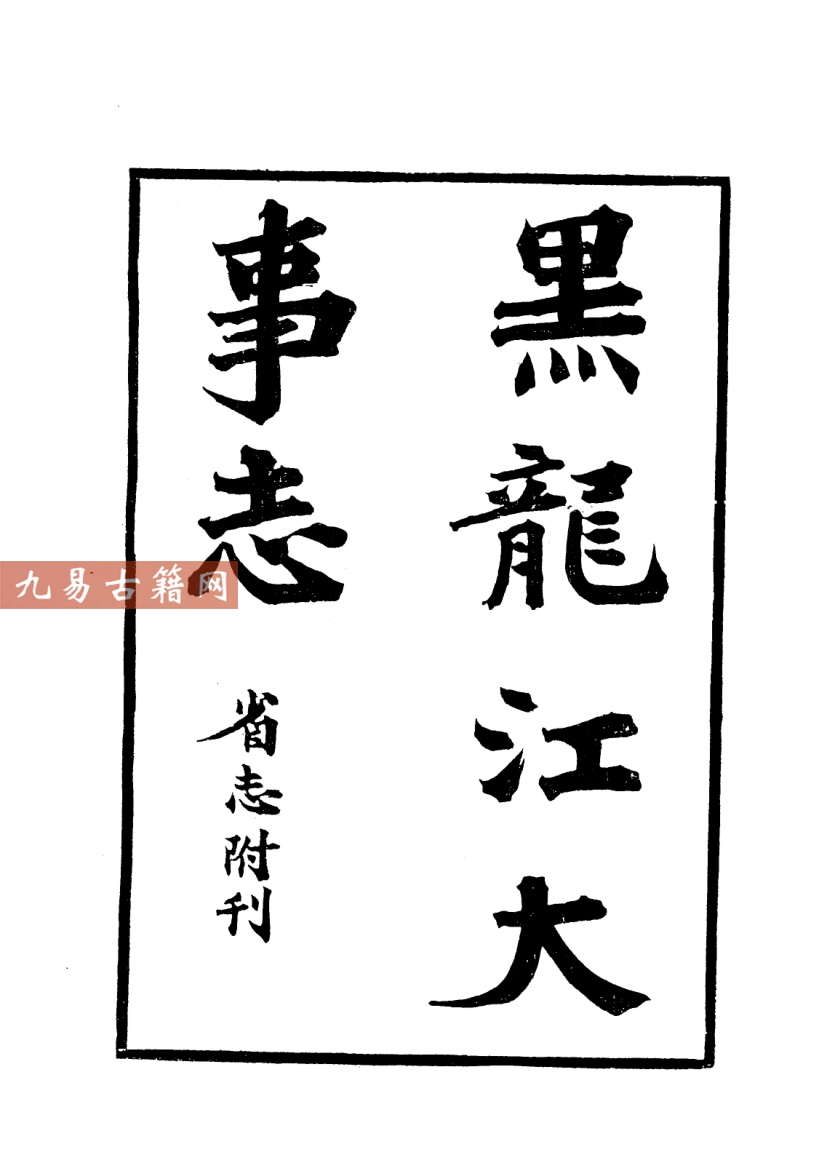 黑龍江大
事志
省志附刊
九易古籍网